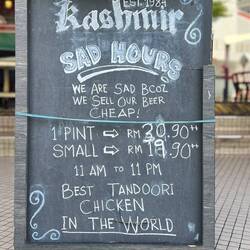 EST. 1984
Kashmir
SAD HOURS
WE ARE SAD BCOZ
WE SELL OUR BEER
CHEAP!
1 PINT ⇨ RM 20.90++
SMALL ⇨ RM 19.90++
11 AM TO 11 PM
BEST TANDOORI
CHICKEN
IN THE WORLD